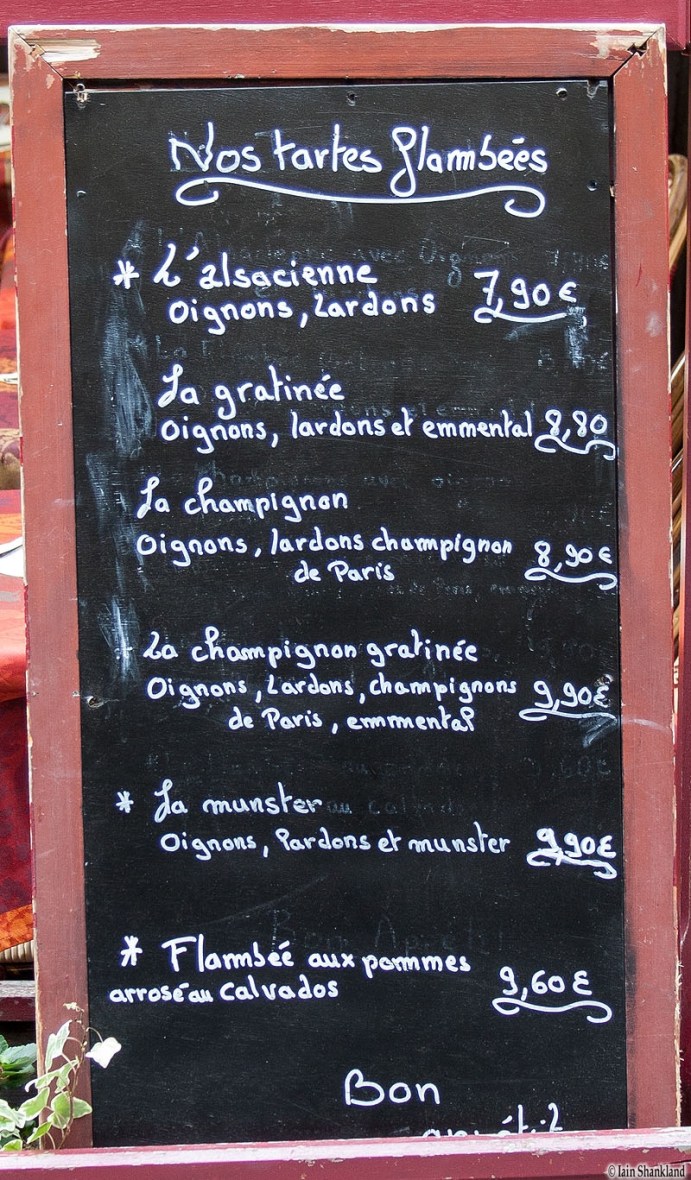 Nos tartes flambées
* L'alsacienne 7,90 €
Oignons, Lardons
La gratinée
Oignons, lardons et emmental 8,80
La champignon
Oignons, lardons champignon 8,90 €
de Paris
La champignon gratinée
Oignons, Lardons, champignons 9,90 €
de Paris, emmental
* La munster
Oignons, lardons et munster 9,90 €
* Flambée aux pommes
arrosé au calvados 9,60 €
Bon
© Iain Shankland